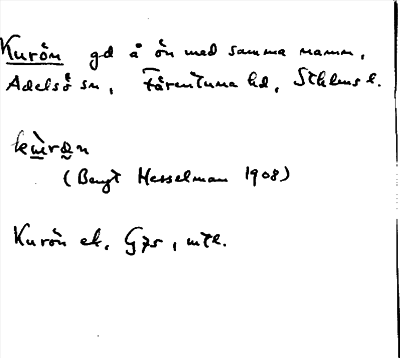 Kurön gd å ön med samma namn,
Adelsö sn, Färentuna hd, Sthlms l.
(Bengt Hesselman 1908)
Kurön ek.